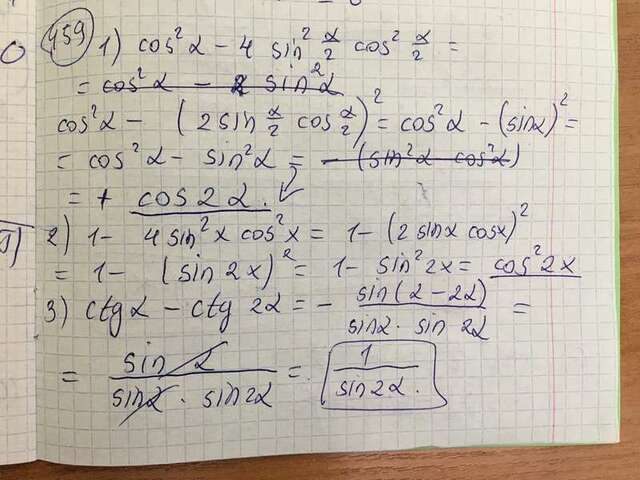 459 1) cos²α - 4 sin² α/2 cos² α/2 =
= cos²α - 2 sin²α
cos²α - (2sin α/2 cos α/2)² = cos²α - (sinα)² =
= cos²α - sin²α = - (sin²α cos²α)
= + cos2α.
2) 1 - 4sin²x cos²x = 1 - (2sinx cosx)²
= 1 - (sin2x)² = 1 - sin²2x = cos²2x
3) ctgα - ctg2α = - sin(α-2α) / sinα · sin2α =
= sinα / sinα · sin2α = 1 / sin2α.